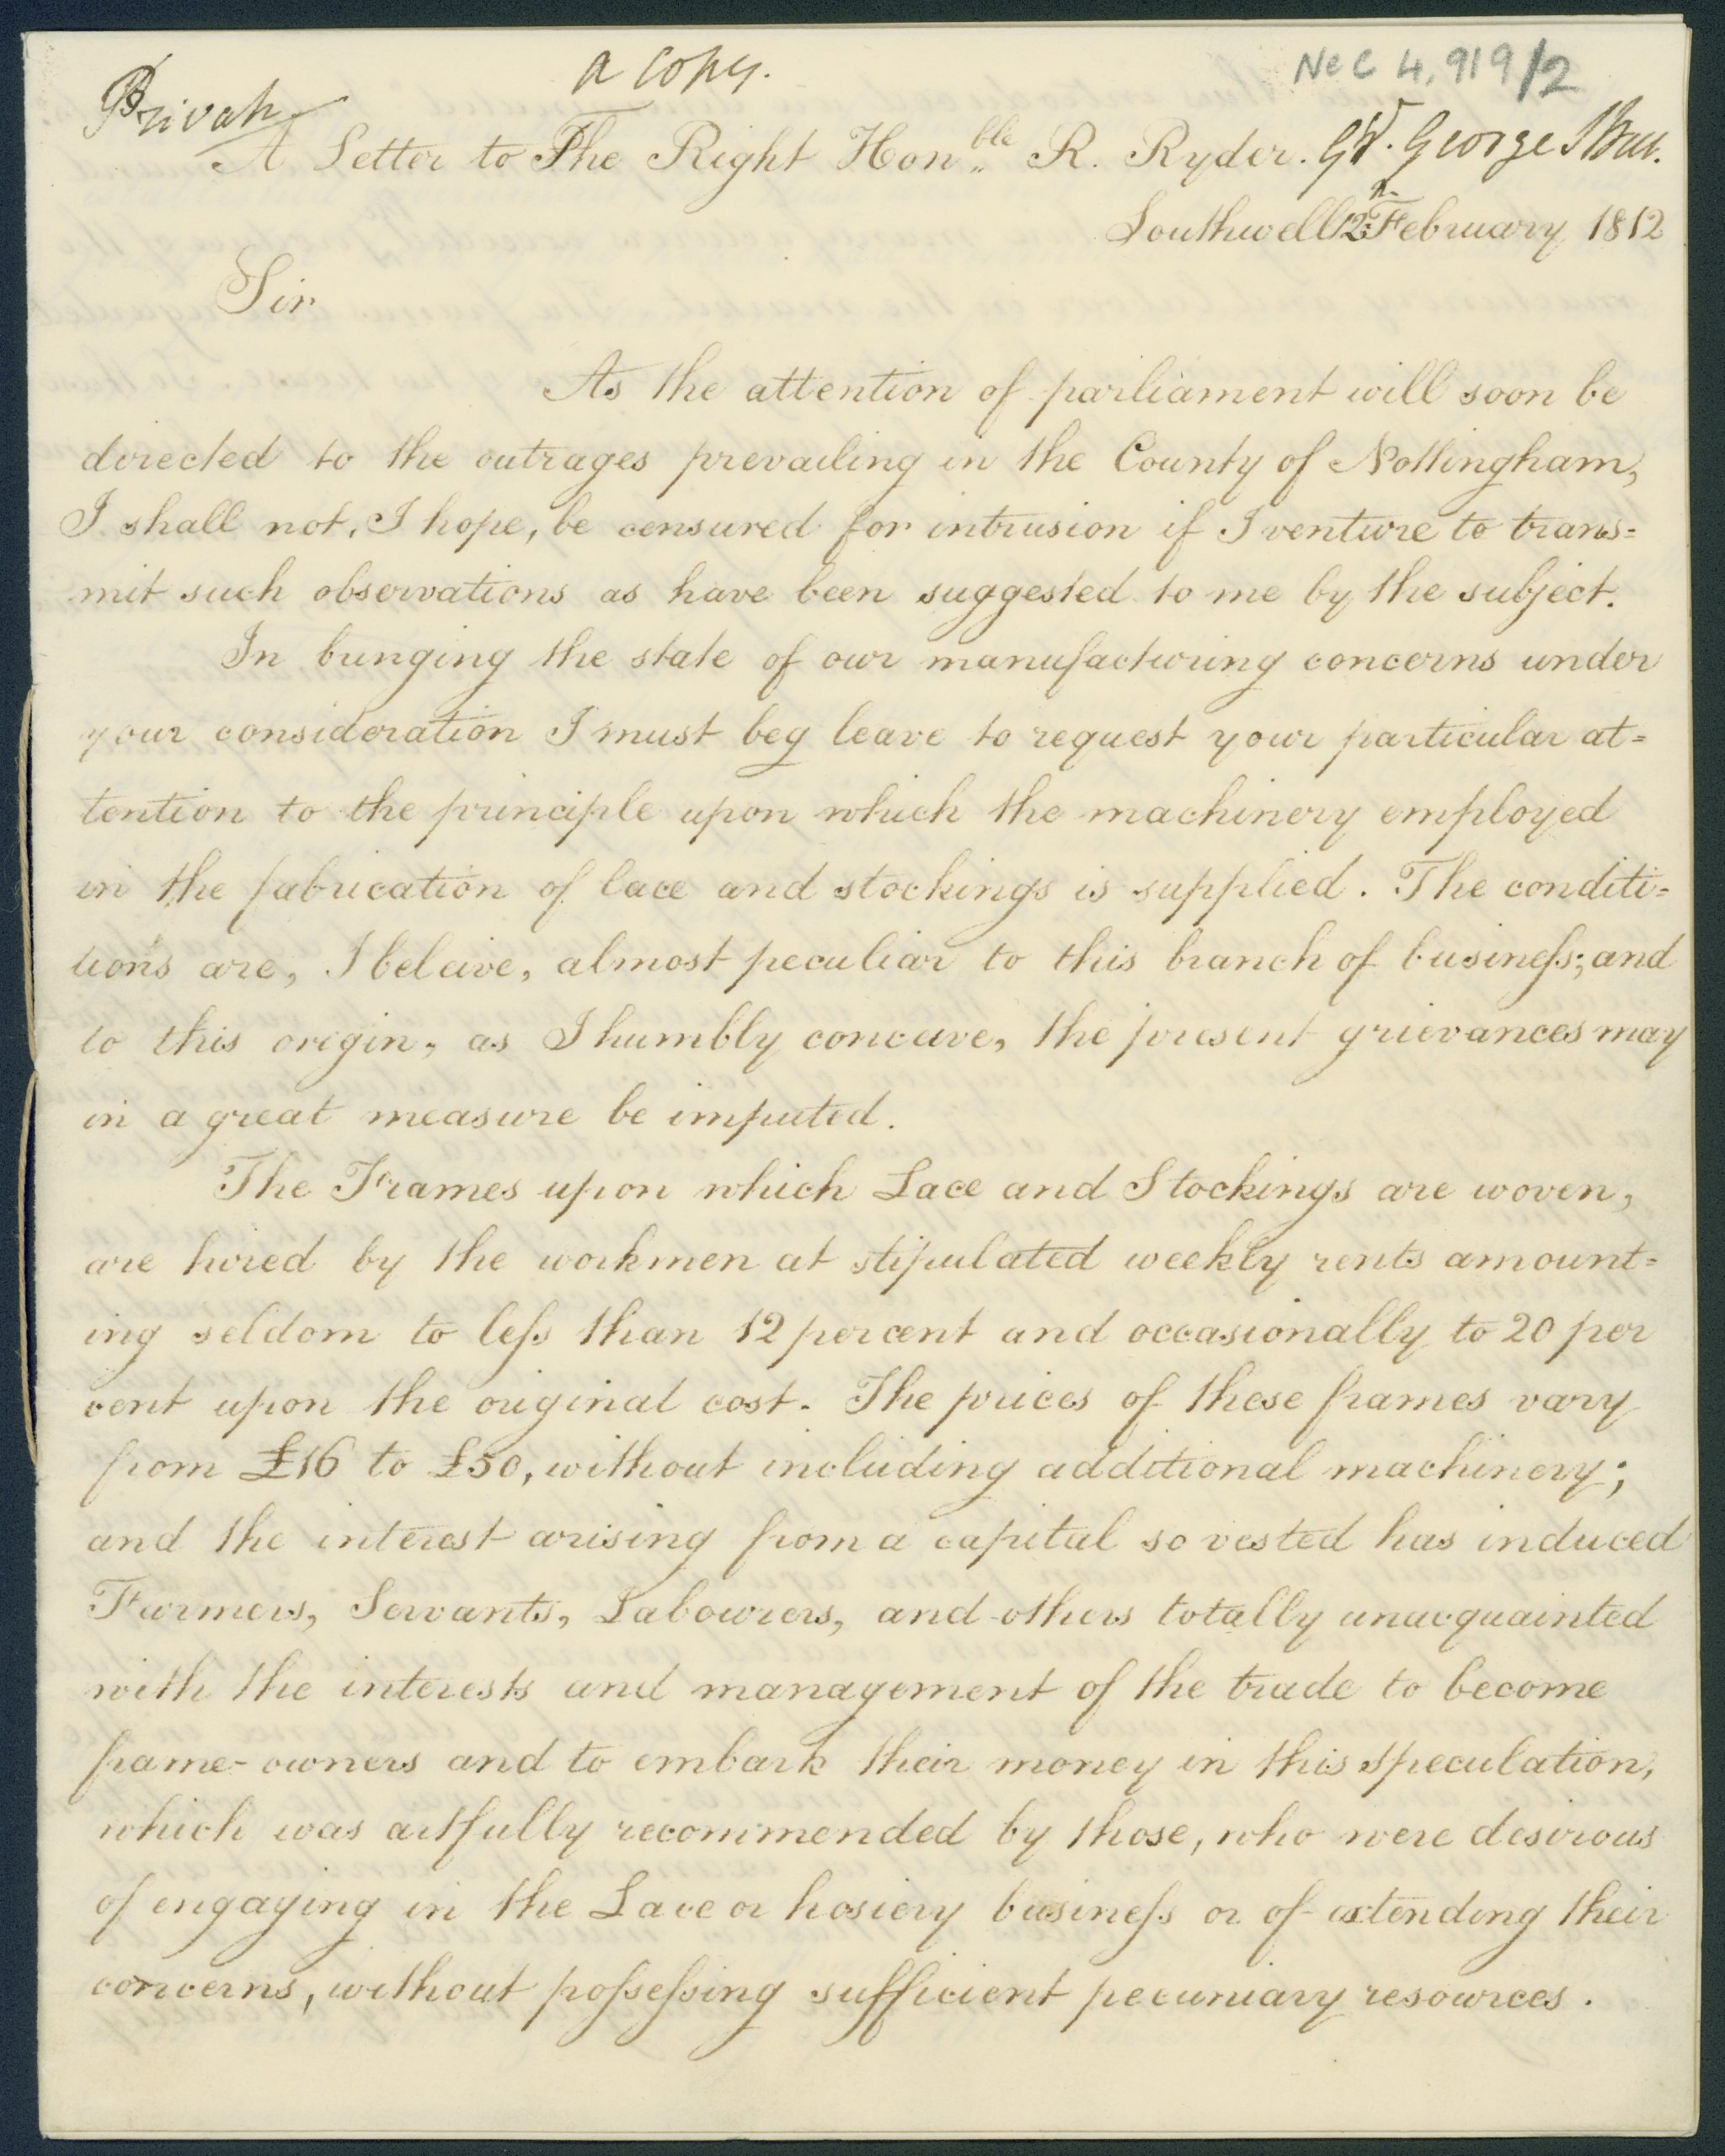 Private
a copy.
Ne C 4,919/2
A Letter to The Right Hon.ble R. Ryder. George
Southwell 12 February 1812
Sir
As the attention of parliament will soon be
directed to the outrages prevailing in the County of Nottingham,
I shall not, I hope, be censured for intrusion if I venture to trans=
mit such observations as have been suggested to me by the subject.
In bringing the state of our manufacturing concerns under
your consideration I must beg leave to request your particular at=
tention to the principle upon which the machinery employed
in the fabrication of lace and stockings is supplied. The conditi=
tions are, I beleive, almost peculiar to this branch of business; and
to this origin, as I humbly conceive, the present grievances may
in a great measure be imputed.
The Frames upon which Lace and Stockings are woven,
are hired by the workmen at stipulated weekly rents amount=
ing seldom to less than 12 per cent and occasionally to 20 per
cent upon the original cost. The prices of these frames vary
from £16 to £50, without including additional machinery;
and the interest arising from a capital so vested has induced
Farmers, Servants, Labourers, and others totally unacquainted
with the interests and management of the trade to become
frame-owners and to embark their money in this speculation,
which was artfully recommended by those, who were desirous
of engaging in the Lace or hosiery business or of extending their
concerns, without possessing sufficient pecuniary resources.